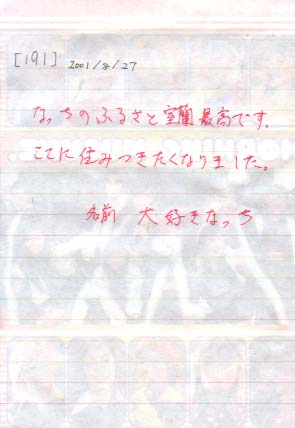 [191] 2001/8/27
なっちのふるさと室蘭最高です.
ここに住みつきたくなりました。
名前 大好きなっち